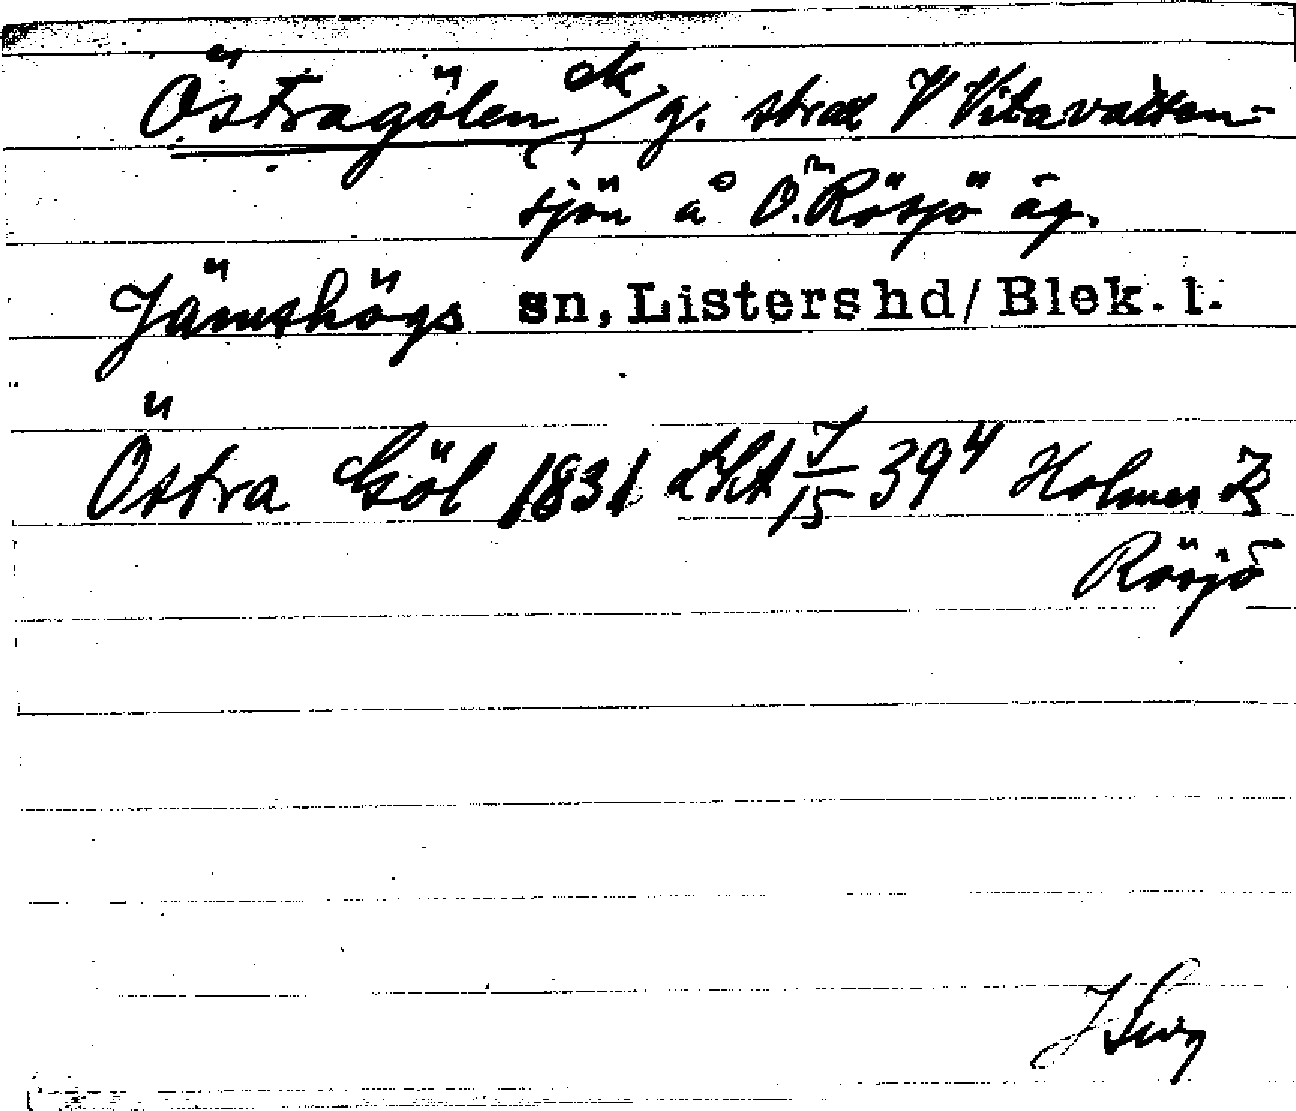 Östragölen ek g. strax V Vitavatten-
sjön å Ö. Rösjö äg.
Jämshögs sn, Listers hd/ Blek. l.
Östra Göl 1831 LSA J/15 39⁴ Holmer
Rösjö